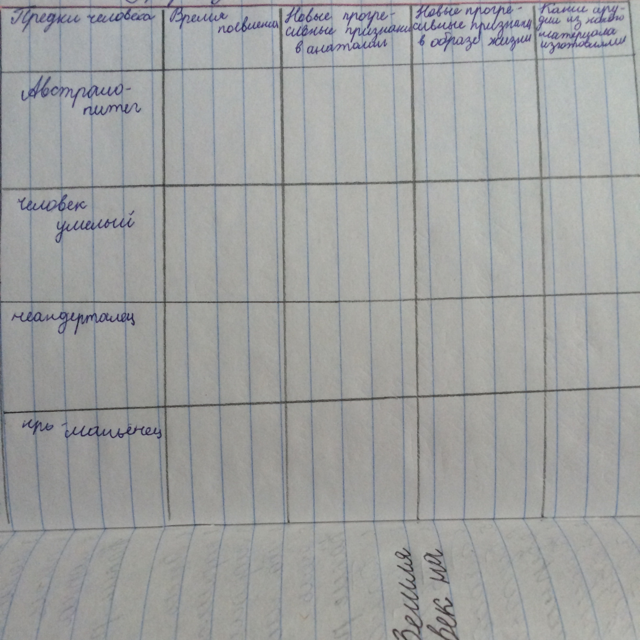 Предки человека
Время
появления
Новые прогре-
сивные признаки
в анатомии
Новые прогре-
сивные признаки
в образе жизни
Какие ору-
дия из какого
материала
изготовляли
Австрало-
питы
человек
умелый
неандерталец
кро-маньенец
Земля
век на